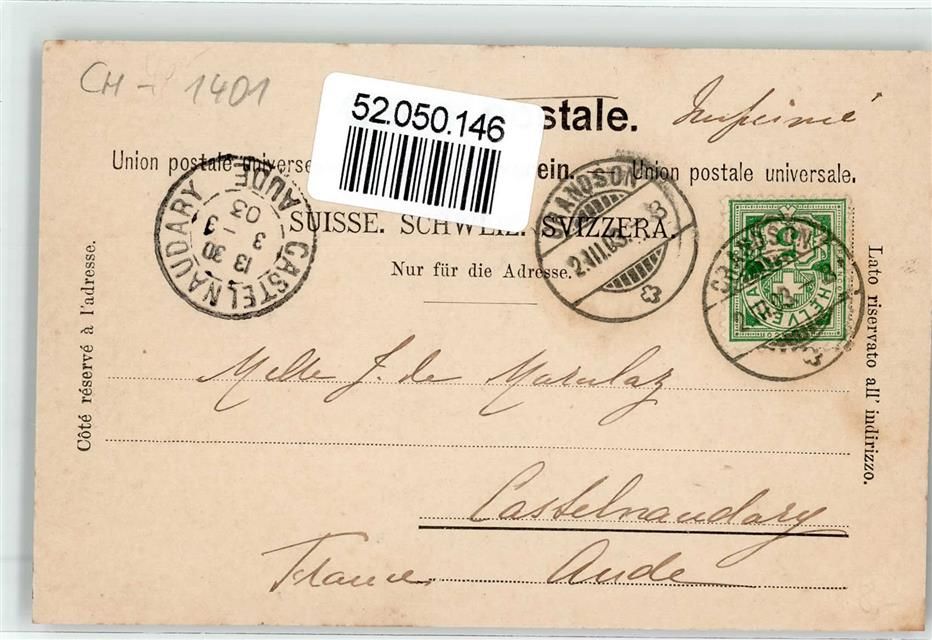 CH - 1401
52.050.146
stale. Imprimé
Union postale universe ein. Union postale universale.
SUISSE. SCHWEIZ. SVIZZERA.
Nur für die Adresse.
CASTELNAUDARY AUDE
13 30
3 - 3
03
GRANDSON
2.III.03
GRANDSON
HELVETIA
Côté réservé à l'adresse.
Lato riservato all' indirizzo.
Melle J. de Marulaz
Castelnaudary
France Aude